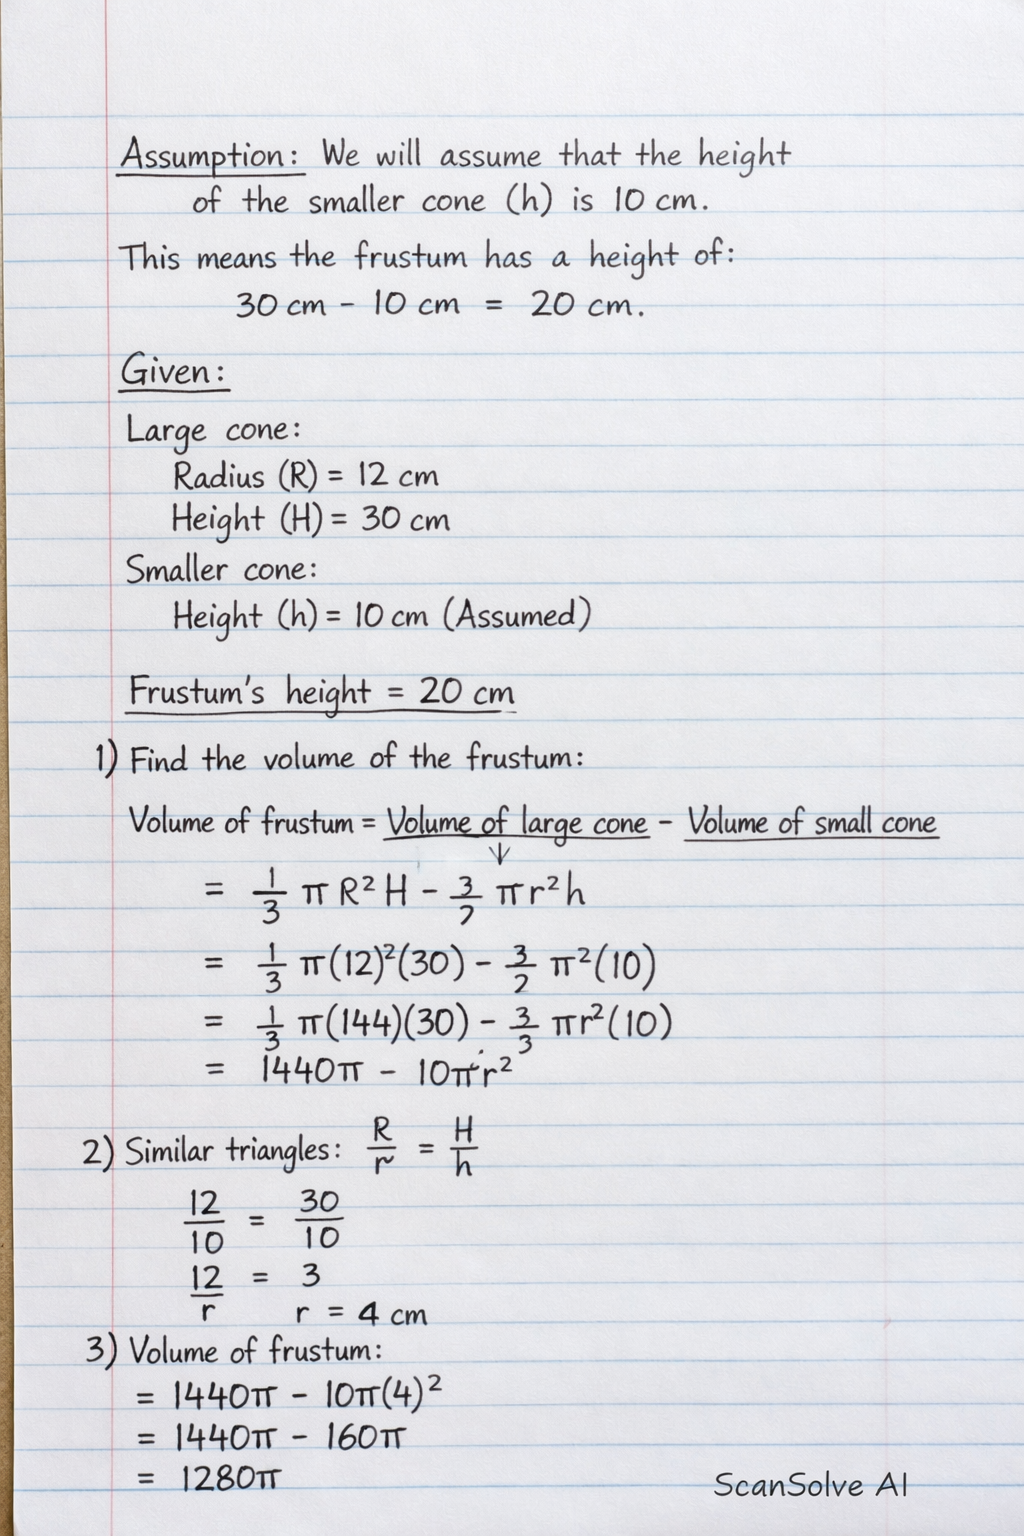 Assumption: We will assume that the height
of the smaller cone (h) is 10 cm.
This means the frustum has a height of:
30 cm - 10 cm = 20 cm.
Given:
Large cone:
Radius (R) = 12 cm
Height (H) = 30 cm
Smaller cone:
Height (h) = 10 cm (Assumed)
Frustum's height = 20 cm
1) Find the volume of the frustum:
Volume of frustum = Volume of large cone - Volume of small cone
↓
= 1/3 π R² H - 3/2 πr²h
= 1/3 π(12)²(30) - 3/2 π²(10)
= 1/3 π(144)(30) - 3/3 πr²(10)
= 1440π - 10πr²
2) Similar triangles: R/r = H/h
12/10 = 30/10
12/r = 3
r = 4 cm
3) Volume of frustum:
= 1440π - 10π(4)²
= 1440π - 160π
= 1280π
ScanSolve AI